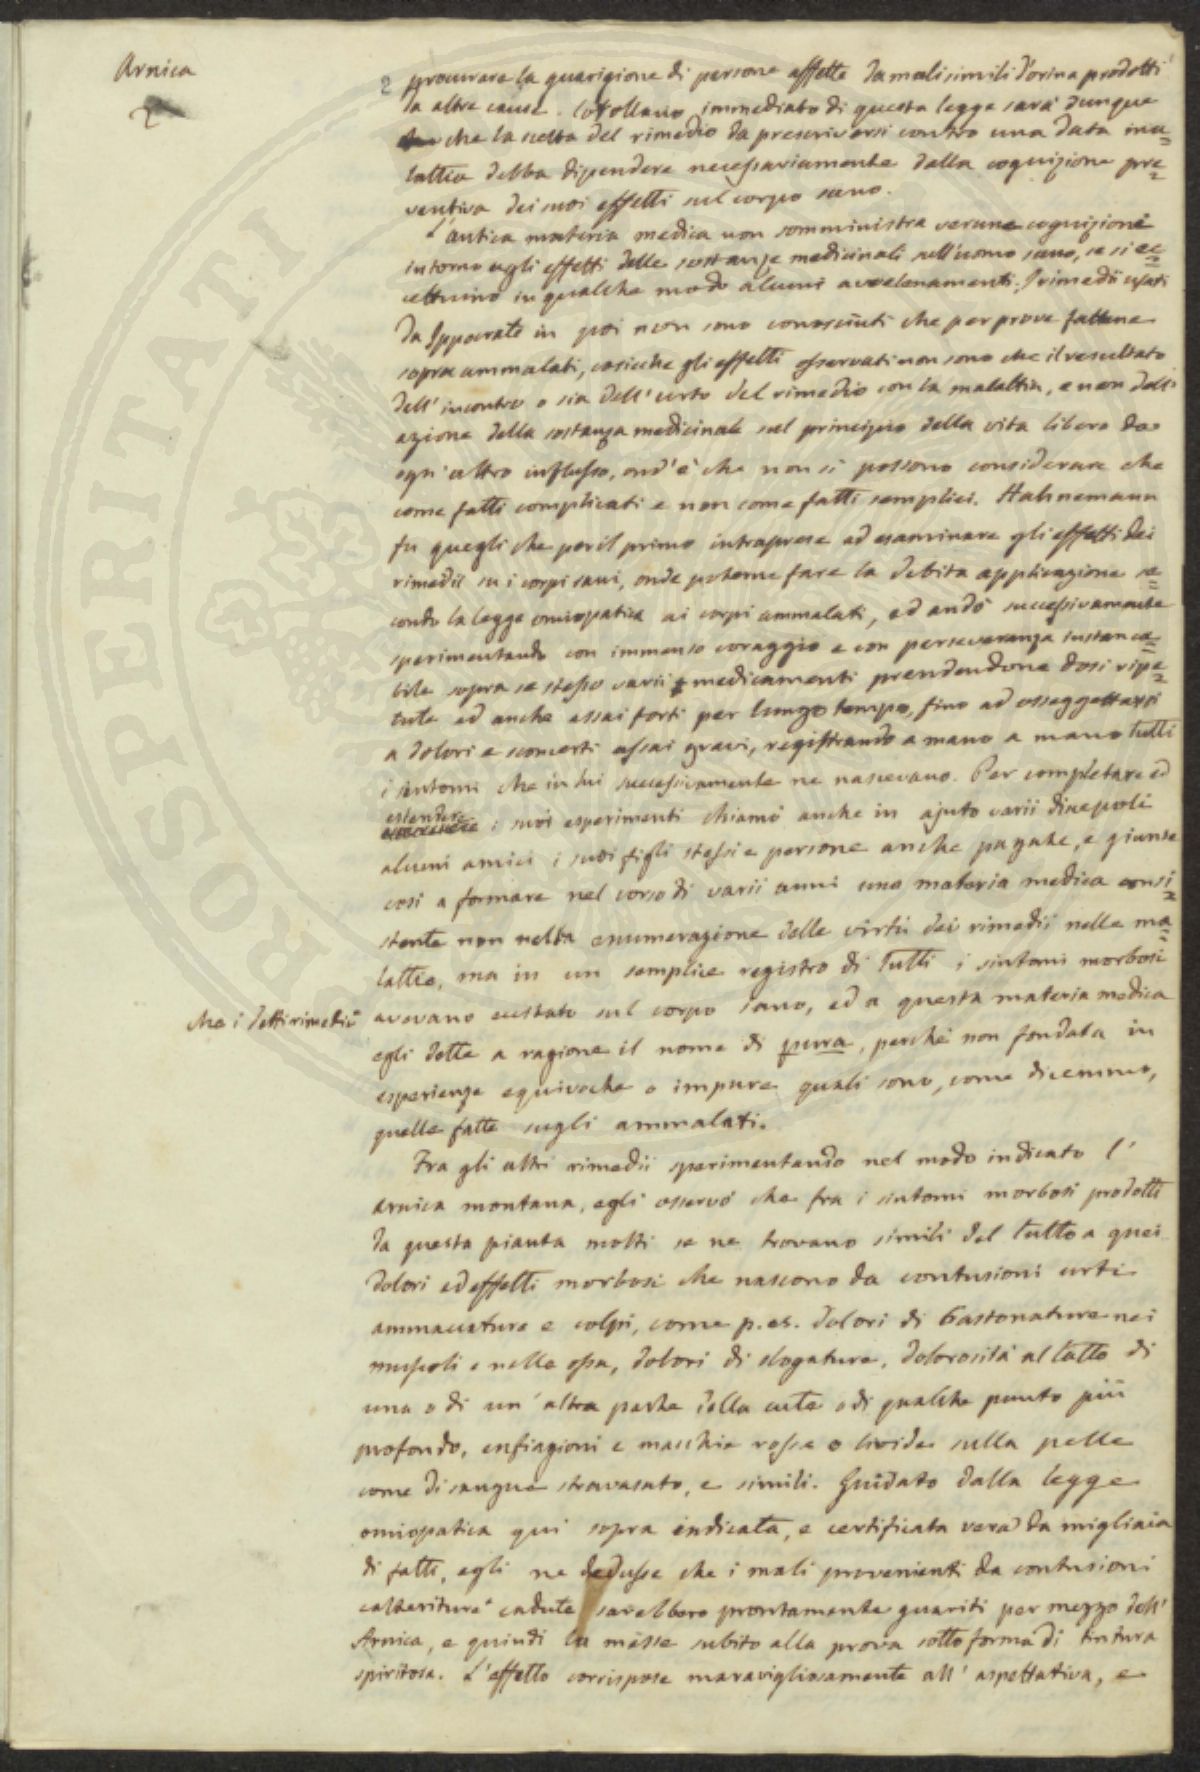 Arnica
2
2 procurare la guarigione di persone affette da mali simili d'orina prodotti
da altre cause. Corollario immediato di questa legge sarà dunque
che la scelta del rimedio da prescriversi contro una data ma=
lattia debba dipendere necessariamente dalla cognizione pre=
ventiva dei suoi effetti sul corpo sano.
L'antica materia medica non somministra verune cognizioni
intorno agli effetti delle sostanze medicinali sull'uomo sano, se si ec=
cettuino in qualche modo alcuni avvelenamenti. I rimedii usati
da Ippocrate in poi non sono conosciuti che per prove fattene
sopra ammalati, cosicche gli effetti osservati non sono che il resultato
dell'incontro o sia dell'urto del rimedio con la malattia, e non dell'
azione della sostanza medicinale sul principio della vita libero da
ogn'altro influsso, ond'è che non si possono considerare che
come fatti complicati e non come fatti semplici. Hahnemann
fu quegli che per il primo intraprese ad esaminare gli effetti dei
rimedii su i corpi sani, onde poterne fare la debita applicazione se=
condo la legge omiopatica ai corpi ammalati, ed andò successivamente
sperimentando con immenso coraggio e con perseveranza instanca=
bile sopra se stesso varii medicamenti prendendone dosi ripe=
tute ed anche assai forti per lungo tempo, fino ad assoggettarsi
a dolori e sconcerti assai gravi, registrando a mano a mano tutti
i sintomi che in lui successivamente ne nascevano. Per completare ed
estendere
i suoi esperimenti chiamò anche in ajuto varii discepoli
alcuni amici i suoi figli stessi e persone anche pagate, e giunse
così a formare nel corso di varii anni una materia medica consi=
stente non nella enumerazione delle virtù dei rimedii nelle ma=
lattie, ma in un semplice registro di tutti i sintomi morbosi
che i detti rimedii
avevano eccitato sul corpo sano, ed a questa materia medica
egli dette a ragione il nome di pura, perchè non fondata in
esperienze equivoche o impure quali sono, come dicemmo,
quelle fatte sugli ammalati.
Fra gli altri rimedii sperimentando nel modo indicato l'
arnica montana, egli osservò che fra i sintomi morbosi prodotti
da questa pianta molti se ne trovano simili del tutto a quei
dolori ed effetti morbosi che nascono da contusioni urti
ammaccature e colpi, come p. es. dolori di bastonature nei
muscoli e nelle ossa, dolori di slogature, dolorosità al tatto di
una o di un'altra parte della cute o di qualche punto più
profondo, enfiagioni e macchie rosse o livide sulla pelle
come di sangue stravasato, e simili. Guidato dalla legge
omiopatica qui sopra indicata, e certificata vera da migliaia
di fatti, egli ne dedusse che i mali provenienti da contusioni
calteriture cadute sarebbero prontamente guariti per mezzo dell'
Arnica, e quindi la messe subito alla prova sotto forma di tintura
spiritosa. L'effetto corrispose maravigliosamente all'aspettativa, e
PROSPERITATI